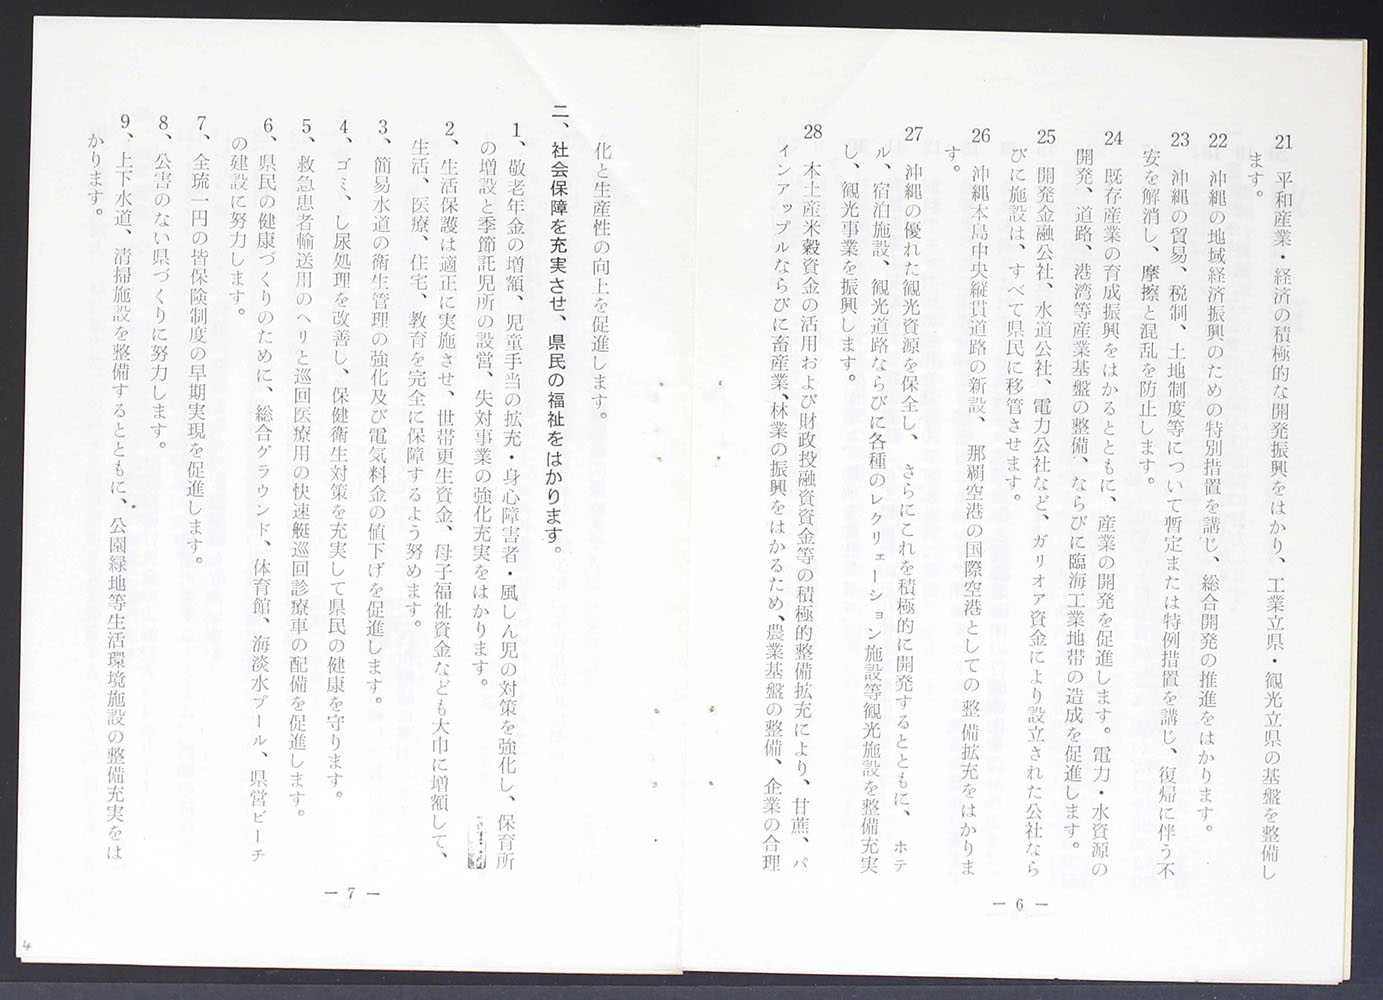 21　平和産業・経済の積極的な開発振興をはかり、工業立県・観光立県の基盤を整備し
ます。
22　沖縄の地域経済振興のための特別措置を講じ、総合開発の推進をはかります。
23　沖縄の貿易、税制、土地制度等について暫定または特例措置を講じ、復帰に伴う不
安を解消し、摩擦と混乱を防止します。
24　既存産業の育成振興をはかるとともに、産業の開発を促進します。電力・水資源の
開発、道路、港湾等産業基盤の整備、ならびに臨海工業地帯の造成を促進します。
25　開発金融公社、水道公社、電力公社など、ガリオア資金により設立された公社なら
びに施設は、すべて県民に移管させます。
26　沖縄本島中央縦貫道路の新設、那覇空港の国際空港としての整備拡充をはかりま
す。
27　沖縄の優れた観光資源を保全し、さらにこれを積極的に開発するとともに、ホテ
ル、宿泊施設、観光道路ならびに各種のレクリェーション施設等観光施設を整備充実
し、観光事業を振興します。
28　本土産米穀資金の活用および財政投融資資金等の積極的整備拡充により、甘蔗、パ
インアップルならびに畜産業、林業の振興をはかるため、農業基盤の整備、企業の合理
― 6 ―
化と生産性の向上を促進します。
二、社会保障を充実させ、県民の福祉をはかります。
1、敬老年金の増額、児童手当の拡充・身心障害者・風しん児の対策を強化し、保育所
の増設と季節託児所の設営、失対事業の強化充実をはかります。
2、生活保護は適正に実施させ、世帯更生資金、母子福祉資金なども大巾に増額して、
生活、医療、住宅、教育を完全に保障するよう努めます。
3、簡易水道の衛生管理の強化及び電気料金の値下げを促進します。
4、ゴミ、し尿処理を改善し、保健衛生対策を充実して県民の健康を守ります。
5、救急患者輸送用のヘリと巡回医療用の快速艇巡回診療車の配備を促進します。
6、県民の健康づくりのために、総合グラウンド、体育館、海淡水プール、県営ビーチ
の建設に努力します。
7、全琉一円の皆保険制度の早期実現を促進します。
8、公害のない県づくりに努力します。
9、上下水道、清掃施設を整備するとともに、公園緑地等生活環境施設の整備充実をは
かります。
― 7 ―
4